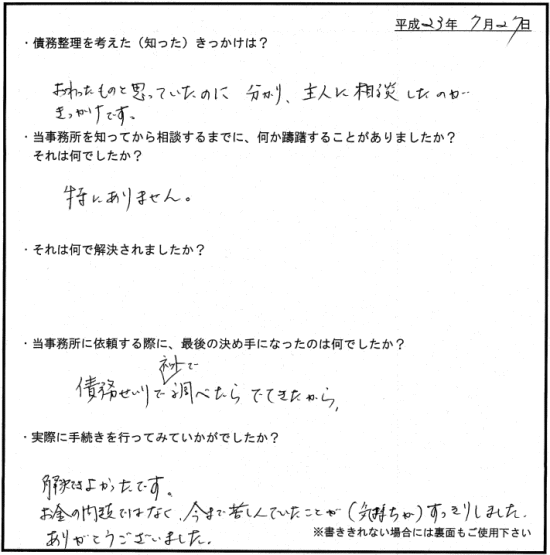 平成23年 7月27日
・債務整理を考えた（知った）きっかけは？
おわったものと思っていたのに 分かり、主人に相談したのが
きっかけです。
・当事務所を知ってから相談するまでに、何か躊躇することがありましたか？
それは何でしたか？
特にありません。
・それは何で解決されましたか？
・当事務所に依頼する際に、最後の決め手になったのは何でしたか？
ネットで
債務せいりで調べたら でてきたから、
・実際に手続きを行ってみていかがでしたか？
解決はよかったです。
お金の問題ではなく、今まで苦しんでいたことが（気持ちが）すっきりしました。
ありがとうございました。
※書ききれない場合には裏面もご使用下さい